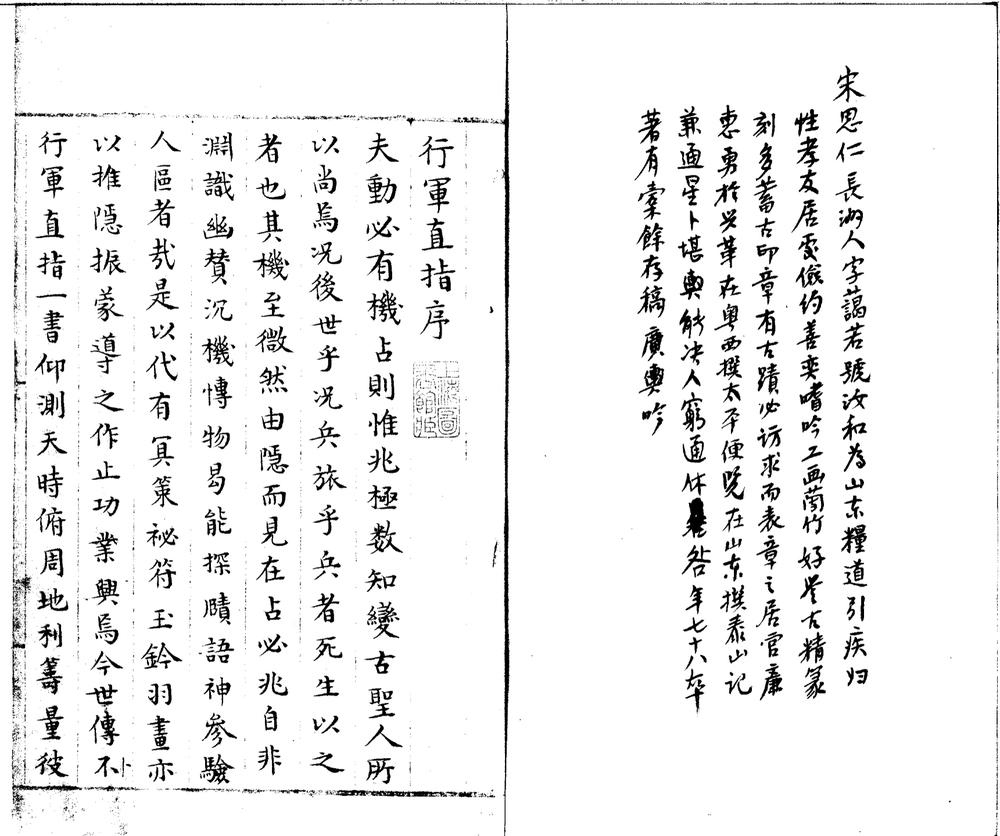 宋思仁長洲人字藹若號汝和為山东糧道引疾归
性孝友居處儉约善奕嗜吟工画蘭竹好学古精篆
刻多蓄古印章有古蹟必访求而表章之居官廉
惠勇於兴革在粤西撰太平便览在山东撰泰山记
兼通星卜堪輿能决人窮通休咎年七十八卒
著有槖餘存稿廣輿吟
行軍直指序
夫動必有機占則惟兆極数知變古聖人所
以尚焉况後世乎况兵旅乎兵者死生以之
者也其機至微然由隠而見在占必兆自非
淵識幽賛沉機慱物曷能探賾語神參驗
人區者㢤是以代有冥策祕符玉鈐羽畫亦
以推隠振蒙導之作止功業興焉今世傳不
行軍直指一書仰測天時俯周地利籌量彼